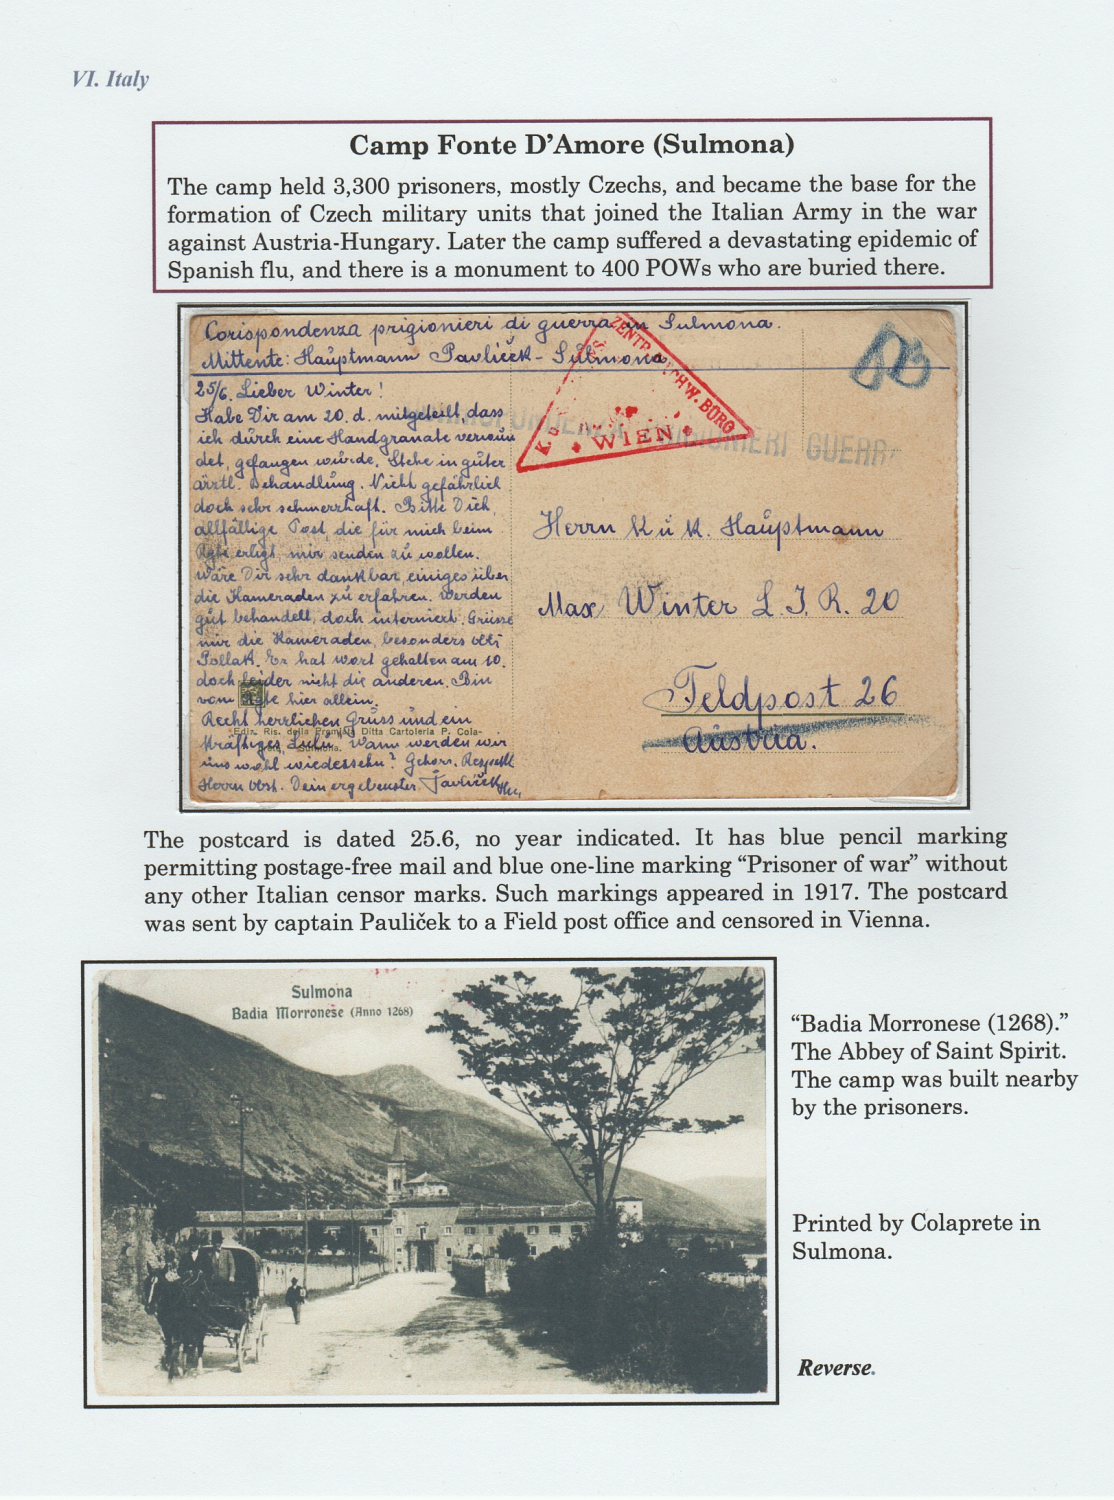 VI. Italy
Camp Fonte D’Amore (Sulmona)
The camp held 3,300 prisoners, mostly Czechs, and became the base for the
formation of Czech military units that joined the Italian Army in the war
against Austria-Hungary. Later the camp suffered a devastating epidemic of
Spanish flu, and there is a monument to 400 POWs who are buried there.
Corispondenza prigionieri di guerra in Sulmona.
Mittente: Hauptmann Pavliček - Sulmona
ZENTR
WIEN
PRIGIONIERI GUERR
25/6. Lieber Winter!
Habe Dir am 20. d. mitgeteilt, dass
ich durch eine Handgranate verwun
det, gefangen wurde. Stehe in guter
ärztl. Behandlung. Nicht gefährlich
doch sehr schmerzhaft. Bitte Dich,
allfällige Post, die für mich beim
erligt, mir senden zu wollen.
Wäre Dir sehr dankbar, einiges über
die Kameraden zu erfahren. Werden
gut behandelt, doch interniert. Grüsse
mir die Kameraden, besonders
Pollak. Er hat wort gehalten am 10.
doch leider nicht die anderen. Bin
vom hier allein.
Recht herzlichen Gruss und ein
kräftiges Wann werden wir
uns wohl wiedersehn? Gehors. Respekt
Herrn Obst. Dein ergebenster Pavliček
Ediz. Ris. della Premiata Ditta Cartoleria P. Cola-
Sulmona.
Herrn K u K. Hauptmann
Max Winter L. I. R. 20
Feldpost 26
Austria.
The postcard is dated 25.6, no year indicated. It has blue pencil marking
permitting postage-free mail and blue one-line marking “Prisoner of war” without
any other Italian censor marks. Such markings appeared in 1917. The postcard
was sent by captain Pauliček to a Field post office and censored in Vienna.
Sulmona
Badia Morronese (Anno 1268)
“Badia Morronese (1268).”
The Abbey of Saint Spirit.
The camp was built nearby
by the prisoners.
Printed by Colaprete in
Sulmona.
Reverse.